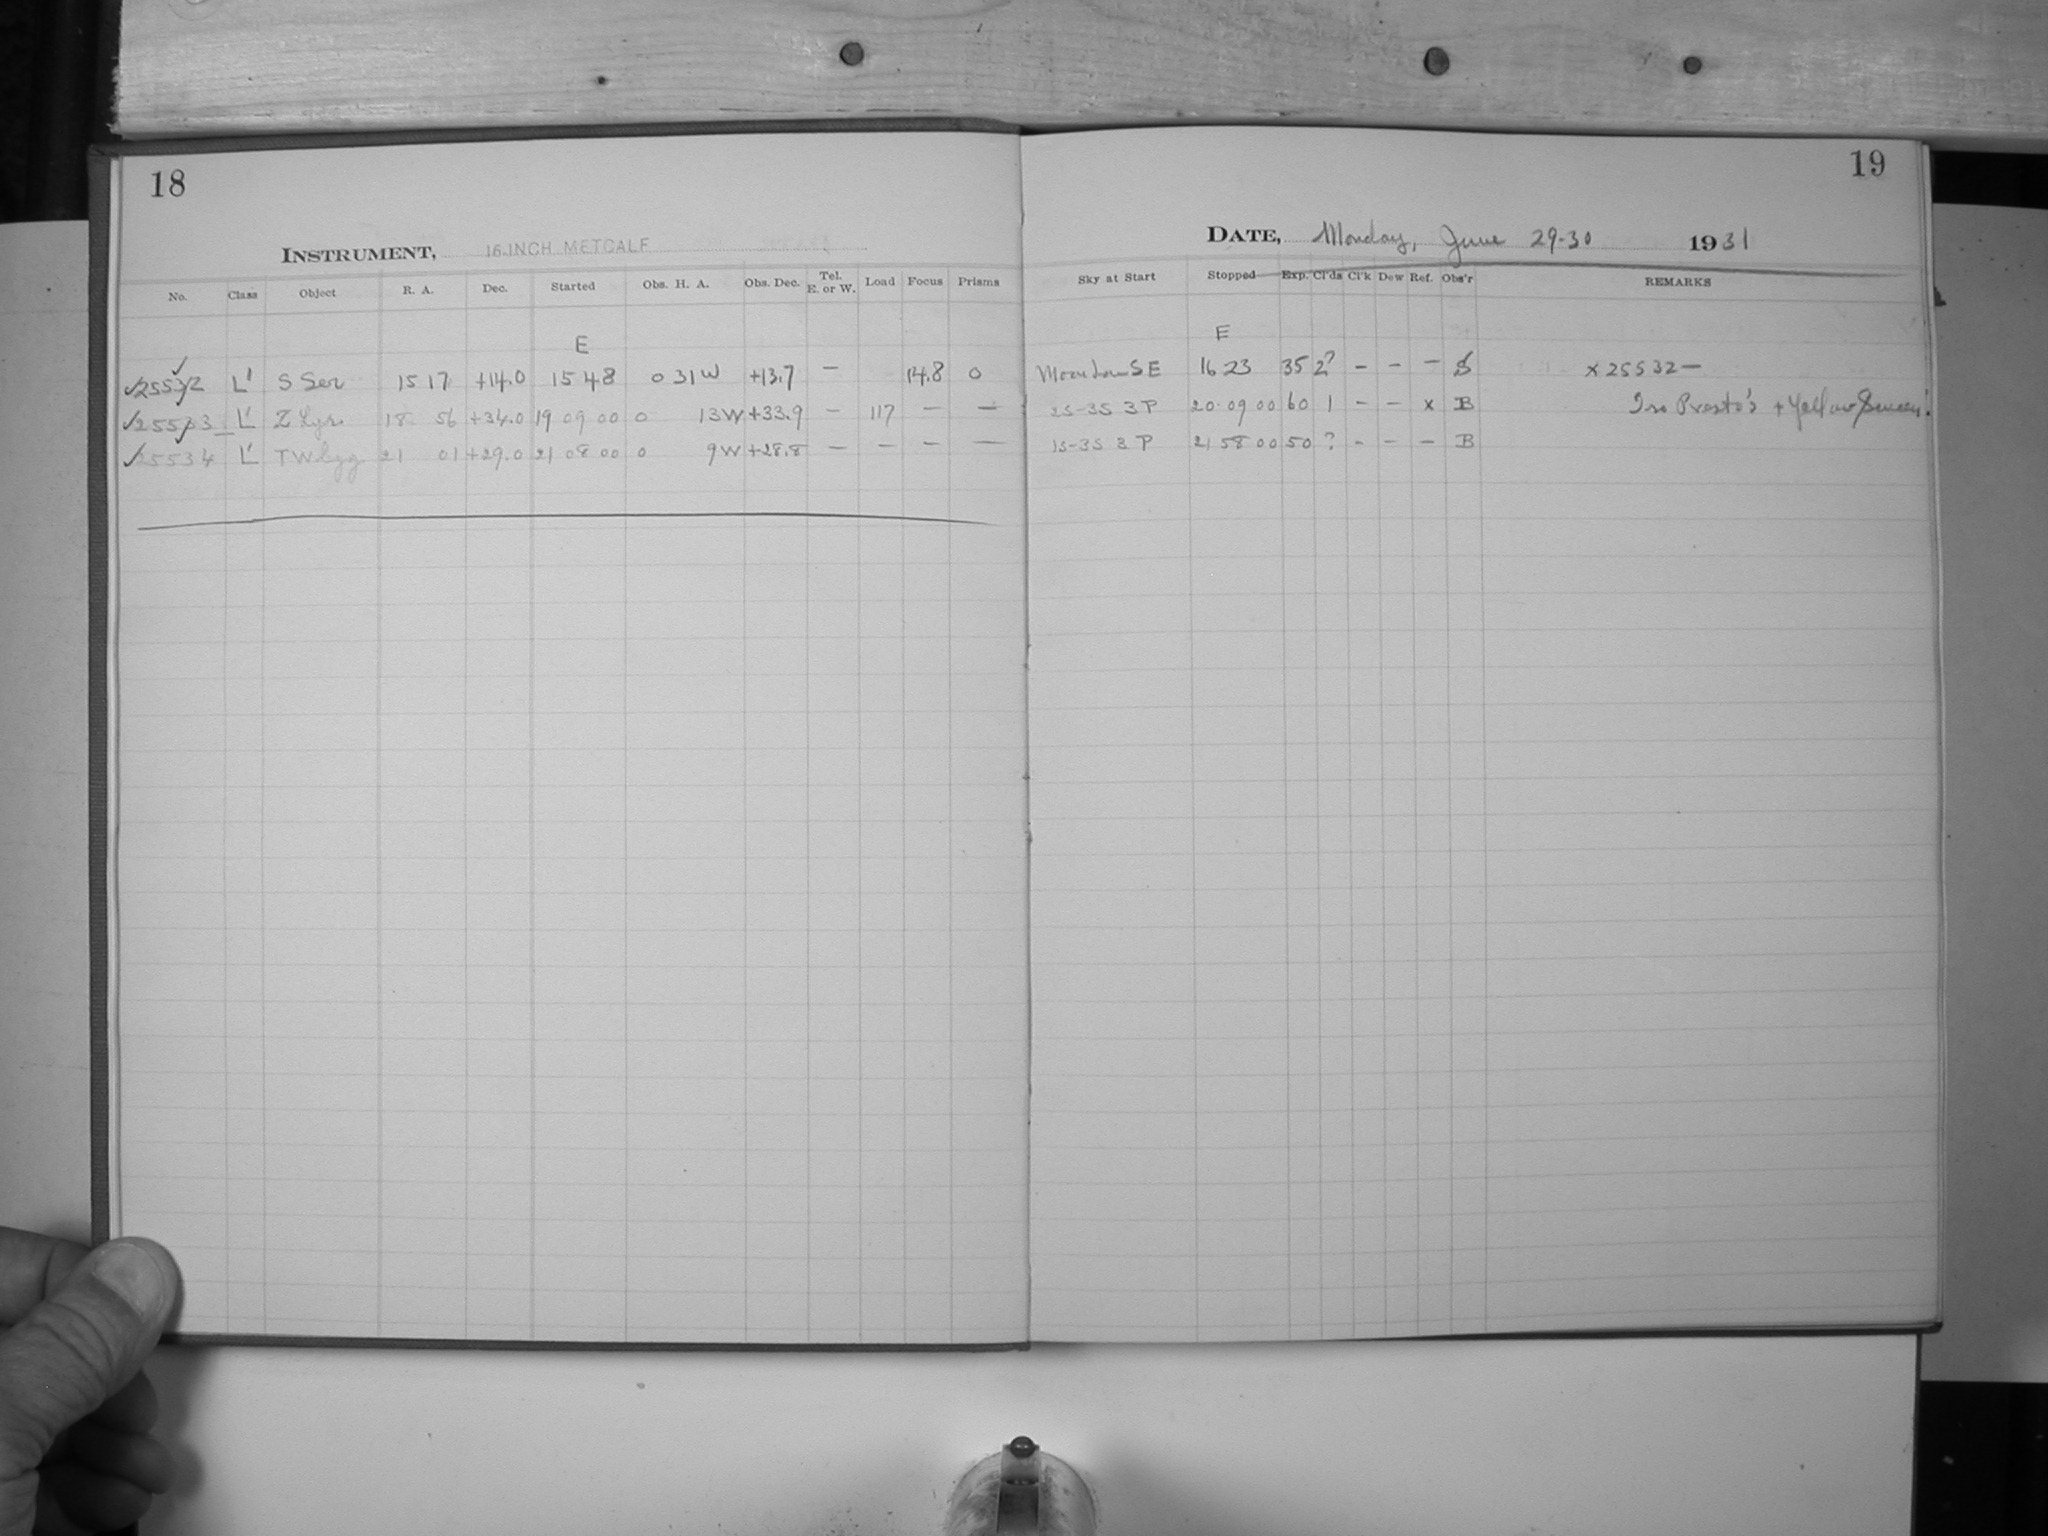 18
INSTRUMENT, 16-INCH METCALF
No. Class Object R. A. Dec. Started Obs. H. A. Obs. Dec. Tel. E. or W. Load Focus Prisms
E
✓25532 L' S Ser 15 17 +14.0 15 48 0 31W +13.7 — 14.8 0
✓25533 L' Z Lyr 18 56 +34.0 19 09 00 0 13W +33.9 — 117 — —
✓25534 L' TW Cyg 21 01 +29.0 21 08 00 0 9W +28.8 — — — —
19
DATE, Monday, June 29-30 1931
Sky at Start Stopped Exp. Cl'ds Cl'k Dew Ref. Obs'r REMARKS
E
Moon low SE 16 23 35 2? — — — S x 25532 —
2S-3S 3 P 20 09 00 60 1 — — x B Iso Presto's + Yellow Screen!
1S-3S 3 P 21 58 00 50 ? — — — B